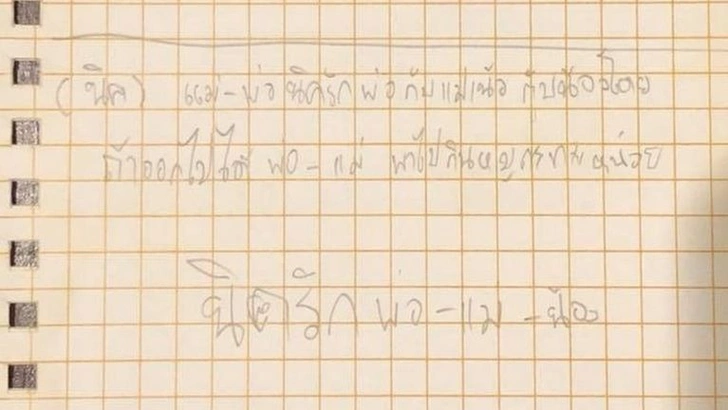 (นิค) แม่-พ่อ นิครักพ่อกับแม่เน้อ กับน้องโตย
ถ้าออกไปได้ พ่อ-แม่ พาไปกินหมูกระทะหน่อย
นิครัก พ่อ-แม่-น้อง